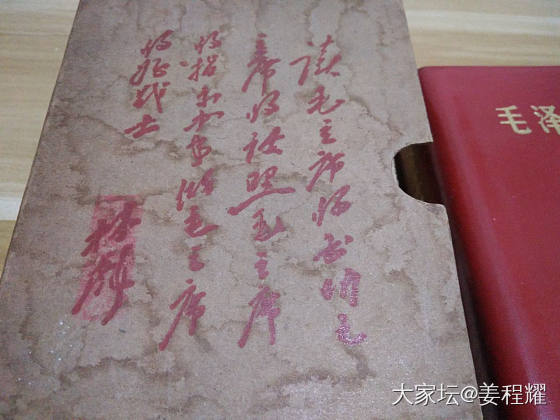 读毛主席的书听毛
主席的话照毛主席
的指示办事做毛主席
的好战士
林彪
毛泽
大家坛@姜程耀